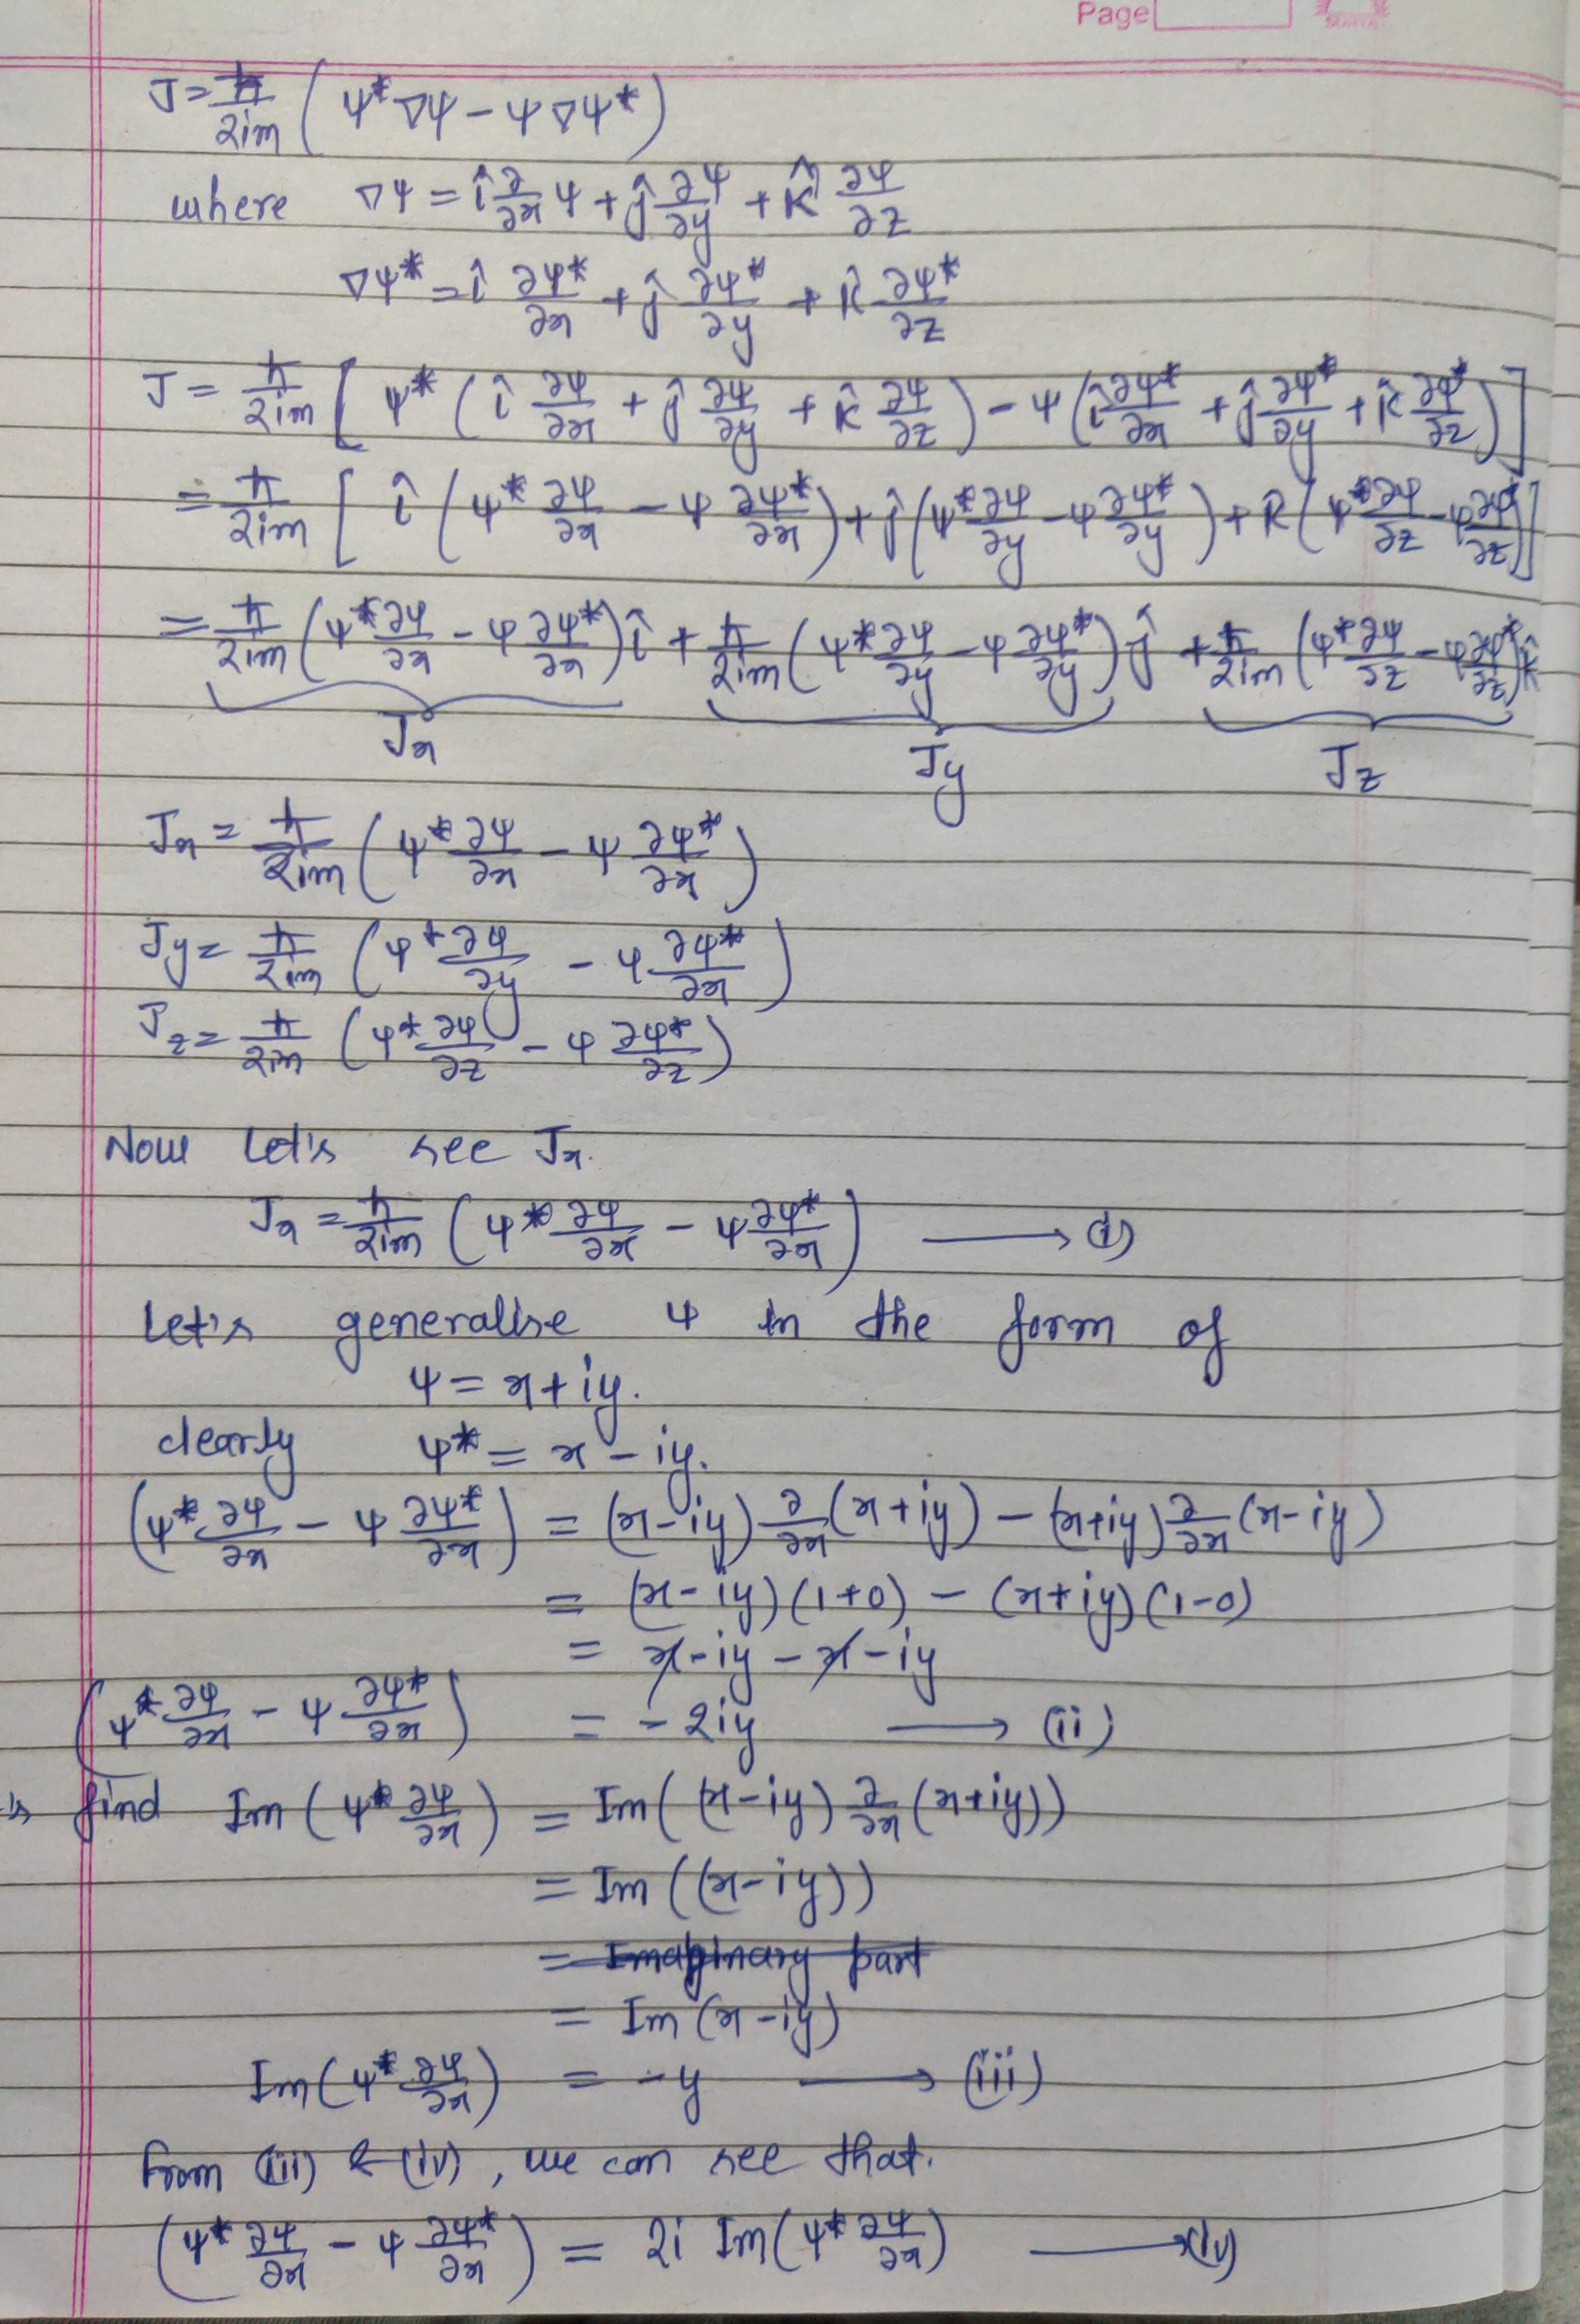 Page
J = ħ/2im (ψ* ∇ψ − ψ ∇ψ*)
where ∇ψ = î ∂/∂x ψ + ĵ ∂ψ/∂y + k̂ ∂ψ/∂z
∇ψ* = î ∂ψ*/∂x + ĵ ∂ψ*/∂y + k̂ ∂ψ*/∂z
J = ħ/2im [ ψ* (î ∂ψ/∂x + ĵ ∂ψ/∂y + k̂ ∂ψ/∂z) − ψ (î ∂ψ*/∂x + ĵ ∂ψ*/∂y + k̂ ∂ψ*/∂z) ]
= ħ/2im [ î (ψ* ∂ψ/∂x − ψ ∂ψ*/∂x) + ĵ (ψ* ∂ψ/∂y − ψ ∂ψ*/∂y) + k̂ (ψ* ∂ψ/∂z − ψ ∂ψ*/∂z) ]
= ħ/2im (ψ* ∂ψ/∂x − ψ ∂ψ*/∂x) î + ħ/2im (ψ* ∂ψ/∂y − ψ ∂ψ*/∂y) ĵ + ħ/2im (ψ* ∂ψ/∂z − ψ ∂ψ*/∂z) k̂
Jx Jy Jz
Jx = ħ/2im (ψ* ∂ψ/∂x − ψ ∂ψ*/∂x)
Jy = ħ/2im (ψ* ∂ψ/∂y − ψ ∂ψ*/∂x)
Jz = ħ/2im (ψ* ∂ψ/∂z − ψ ∂ψ*/∂z)
Now Let's see Jx.
Jx = ħ/2im (ψ* ∂ψ/∂x − ψ ∂ψ*/∂x) ⟶ (i)
Let's generalise ψ in the form of
ψ = x + iy.
clearly ψ* = x − iy.
(ψ* ∂ψ/∂x − ψ ∂ψ*/∂x) = (x − iy) ∂/∂x (x + iy) − (x + iy) ∂/∂x (x − iy)
= (x − iy) (1 + 0) − (x + iy) (1 − 0)
= x − iy − x − iy
(ψ* ∂ψ/∂x − ψ ∂ψ*/∂x) = − 2iy ⟶ (ii)
's find Im (ψ* ∂ψ/∂x) = Im ((x − iy) ∂/∂x (x + iy))
= Im ((x − iy))
= Imaginary part
= Im (x − iy)
Im (ψ* ∂ψ/∂x) = − y ⟶ (iii)
from (iii) & (iv), we can see that.
(ψ* ∂ψ/∂x − ψ ∂ψ*/∂x) = 2i Im (ψ* ∂ψ/∂x) ⟶ (iv)